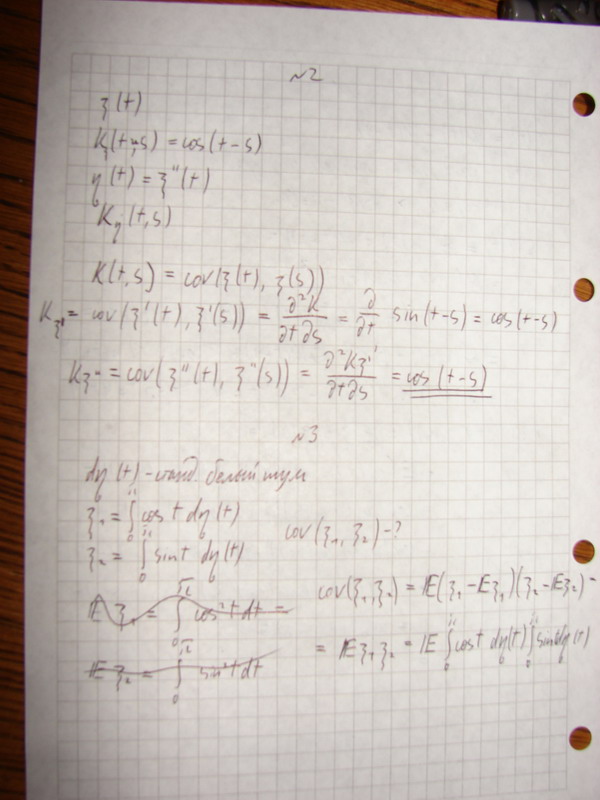 №2
ξ(t)
K(t,s) = cos(t-s)
η(t) = ξ''(t)
K_η(t,s)
K(t,s) = cov(ξ(t), ξ(s))
K_ξ' = cov(ξ'(t), ξ'(s)) = ∂²K/∂t∂s = ∂/∂t sin(t-s) = cos(t-s)
K_ξ'' = cov(ξ''(t), ξ''(s)) = ∂²K_ξ'/∂t∂s = cos(t-s)
№3
dη(t) - станд. белый шум
ξ₁ = ∫ cos t dη(t)
ξ₂ = ∫ sin t dη(t)
cov(ξ₁, ξ₂) - ?
cov(ξ₁, ξ₂) = E(ξ₁ - Eξ₁)(ξ₂ - Eξ₂) =
= Eξ₁ξ₂ = E ∫ cos t dη(t) ∫ sin t dη(t)